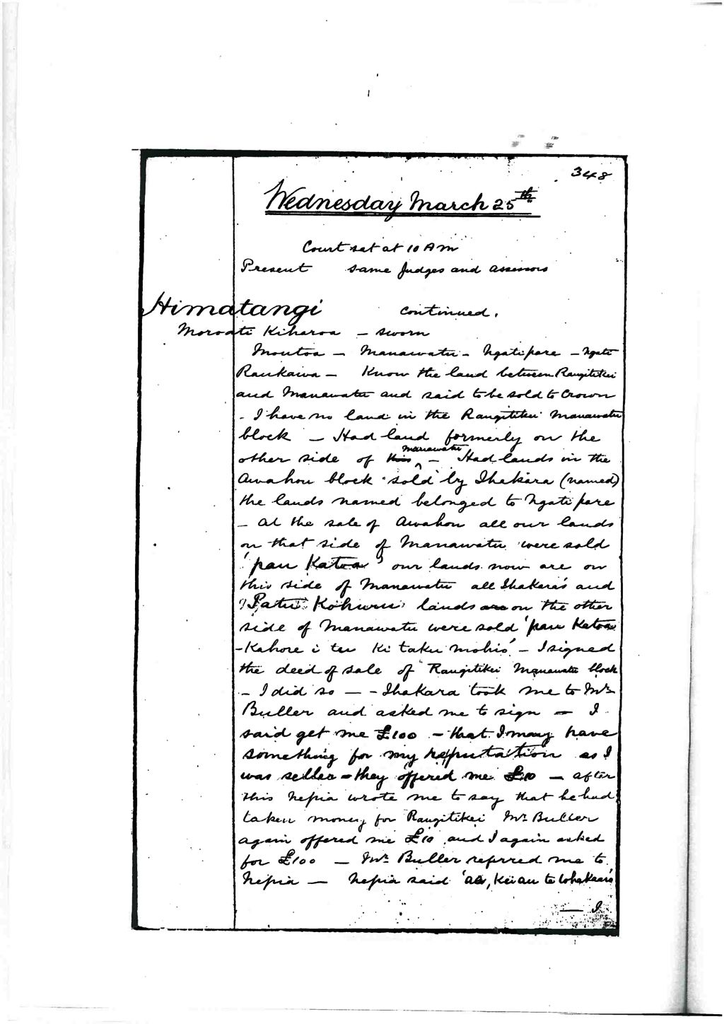 348
Wednesday March 25th
Court sat at 10 AM
Present same Judges and assessors
Himatangi continued.
Moroati Kiharoa - sworn
Moutoa - Manawatu - Ngatipare - Ngati
Raukawa - Know the land between Rangitikei
and Manawatu and said to be sold to Crown
- I have no land in the Rangitikei Manawatu
block - Had land formerly on the
Manawatu
other side of this - Had lands in the
Awahou block sold by Ihakara (named)
the lands named belonged to Ngatipare
- At the sale of Awahou all our lands
on that side of Manawatu were sold
'pau Katoa' our lands now are on
this side of Manawatu all Ihakara's and
Patu Kohuru lands are on the other
side of Manawatu were sold 'pau Katoa
- Kahore i te Ki taku mohio' - I signed
the deed of sale of Rangitikei Manawatu block
- I did so - - Ihakara took me to Mr
Buller and asked me to sign - I
said get me £100 - that I may have
something for my reputation as I
was seller - they offered me £10 - after
this Nepia wrote me to say that he had
taken money for Rangitikei Mr Buller
again offered me £10 and I again asked
for £100 - Mr Buller referred me to
Nepia - Nepia said 'ae, Kei au te Whakaaro
- I